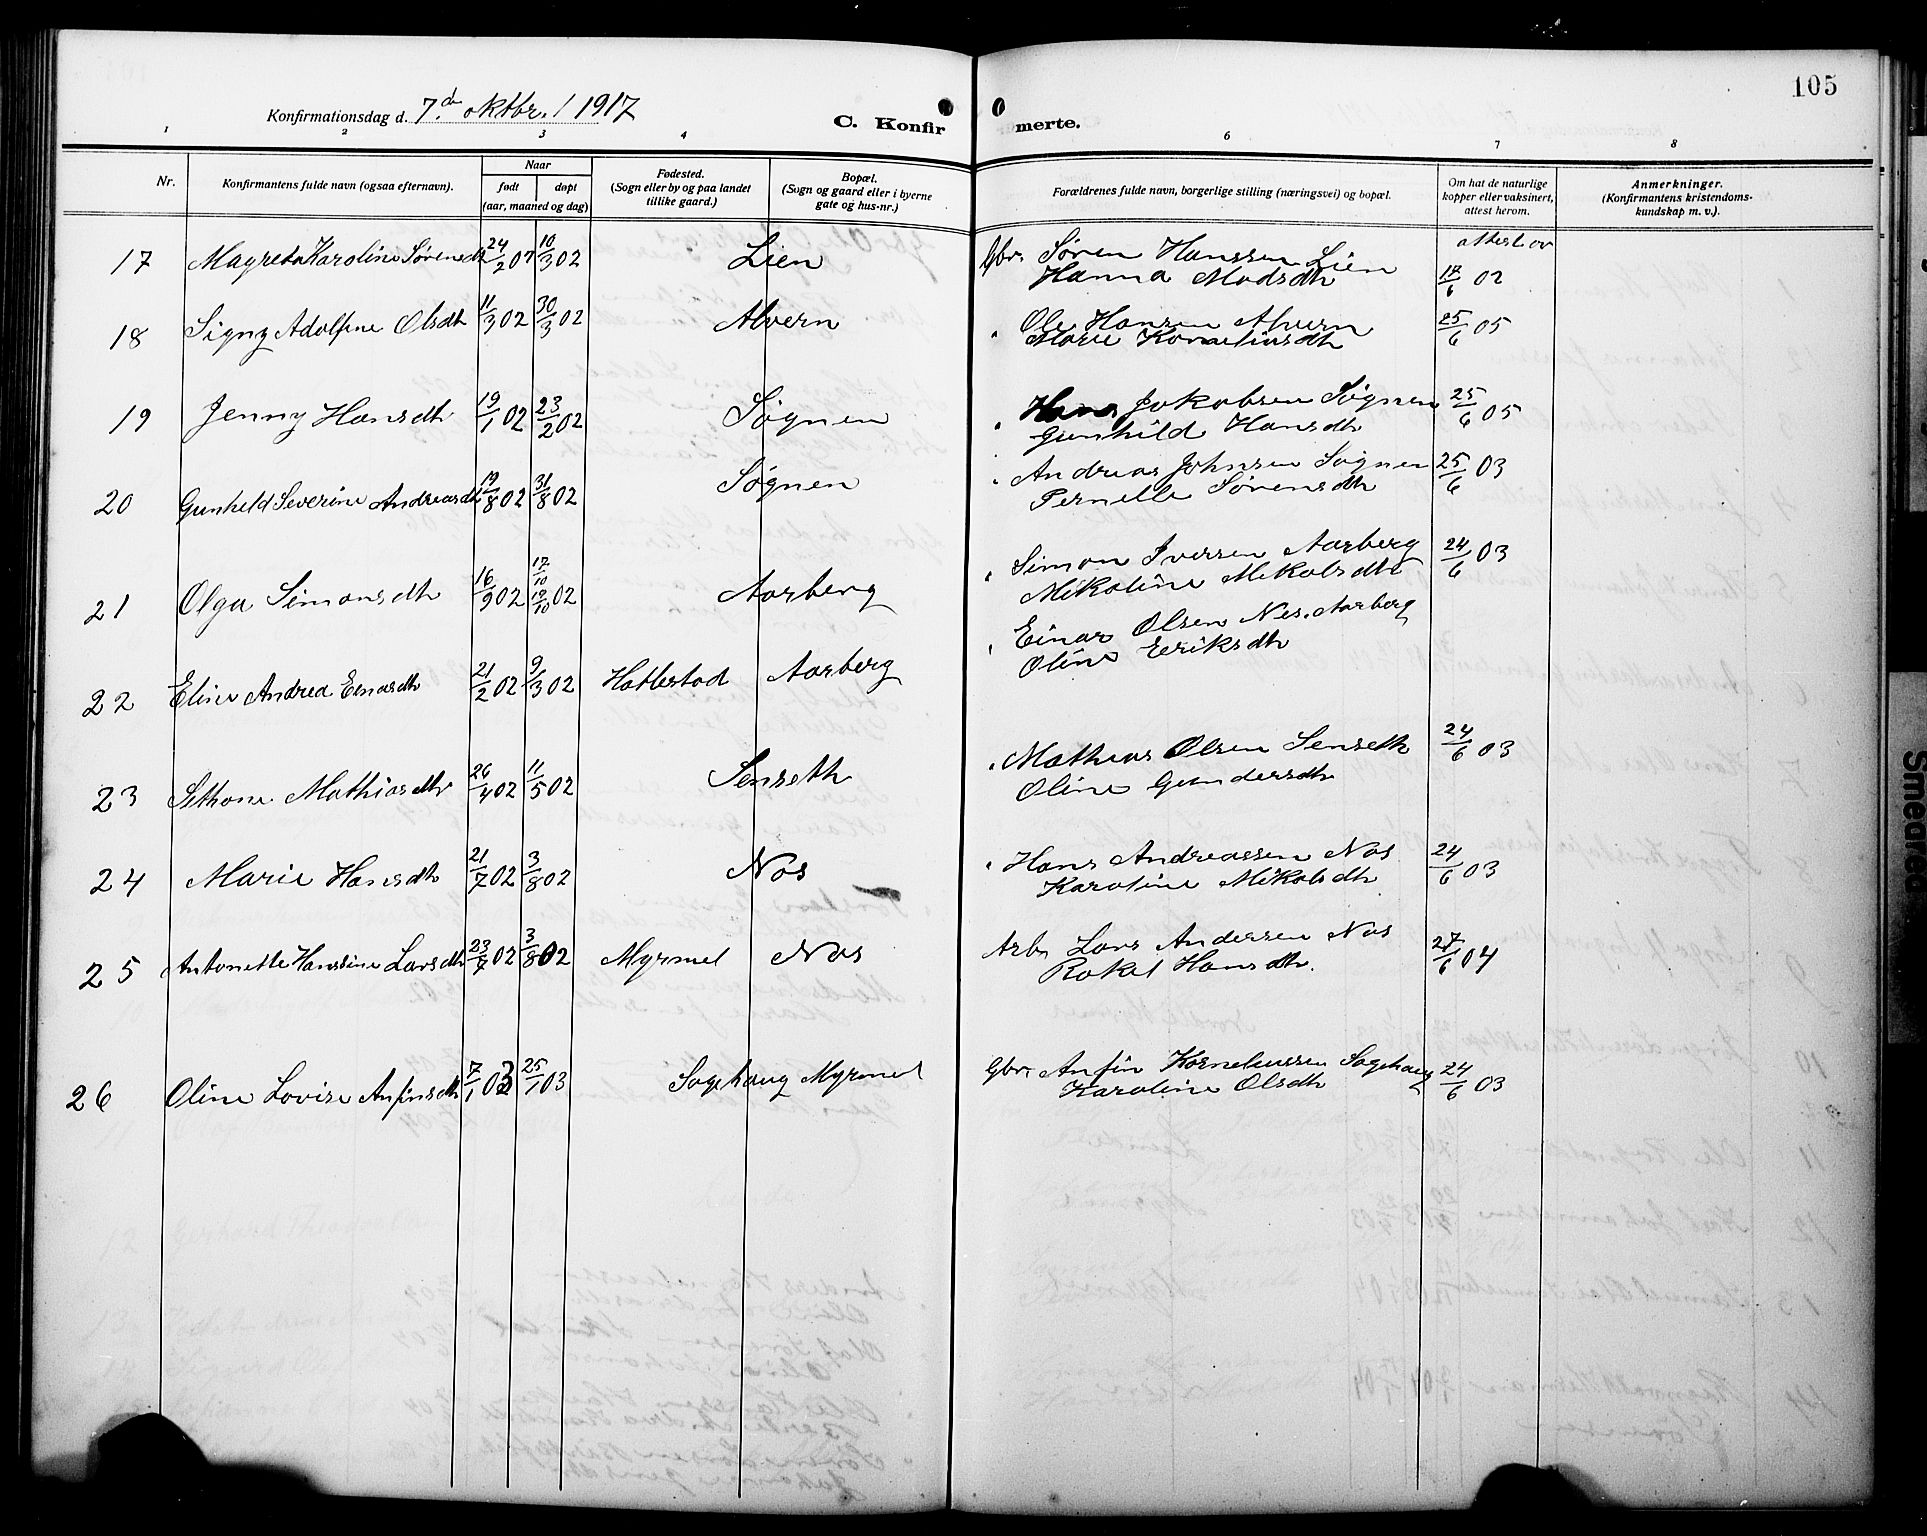 105
Konfirmationsdag d. 7.de oktbr. 1917
C. Konfirmerte.
1 2 3 4 6 7 8
Nr.
Konfirmantens fulde navn (ogsaa efternavn).
Naar
født
døpt
(aar, maaned og dag)
Fødested.
(Sogn eller by og paa landet
tillike gaard.)
Bopæl.
(Sogn og gaard eller i byerne
gate og hus-nr.)
Forældrenes fulde navn, borgerlige stilling (næringsvei) og bopæl.
Om hat de naturlige
kopper eller vaksinert,
attest herom.
Anmerkninger.
(Konfirmantens kristendoms-
kundskap m. v.).
17 Magreta Karoline Sørensdtr 24/2 02 10/3 02 Lien Gbr. Søren Hanssen Lien attest av
Hanna Madsdtr 17/6 02
18 Signy Adolfine Olsdtr 11/3 02 30/3 02 Alvern " Ole Hansen Alvern 25/6 05
Marie Korneliusdtr
19 Jenny Hansdtr 19/1 02 23/2 02 Søgnen " Hans Jokobsen Søgnen 25/6 05
Gunhild Hansdtr
20 Gunhild Severine Andreasdtr 19/8 02 31/8 02 Søgnen " Andreas Johnsen Søgnen 25/6 03
Pernelle Sørensdtr
21 Olga Simonsdtr 16/9 02 17/10 19/10 02 Aarberg " Simon Iversen Aarberg 24/6 03
Mikoline Mikalsdtr
22 Eline Andrea Einarsdtr 21/2 02 9/3 02 Hatlestad Aarberg " Einar Olsen Nes. Aarberg
Oline Eeriksdtr
23 Sethone Mathiasdtr 26/4 02 11/5 02 Senseth " Mathias Olsen Senseth 24/6 03
Oline Gundersdtr
24 Marie Hansdtr 21/7 02 3/8 02 Nos " Hans Andreassen Nos 24/6 03
Karoline Mikalsdtr
25 Antonette Hansine Larsdtr 23/7 02 3/8 02 Myrmel Nos Arb. Lars Andersen Nos 27/6 04
Rakel Hansdtr.
26 Oline Lovise Anfinsdtr 7/1 03 25/1 03 Sagehaug Myrmel Gbr. Anfin Korneliussen Sagehaug 24/6 03
Karoline Olsdtr
Smeared